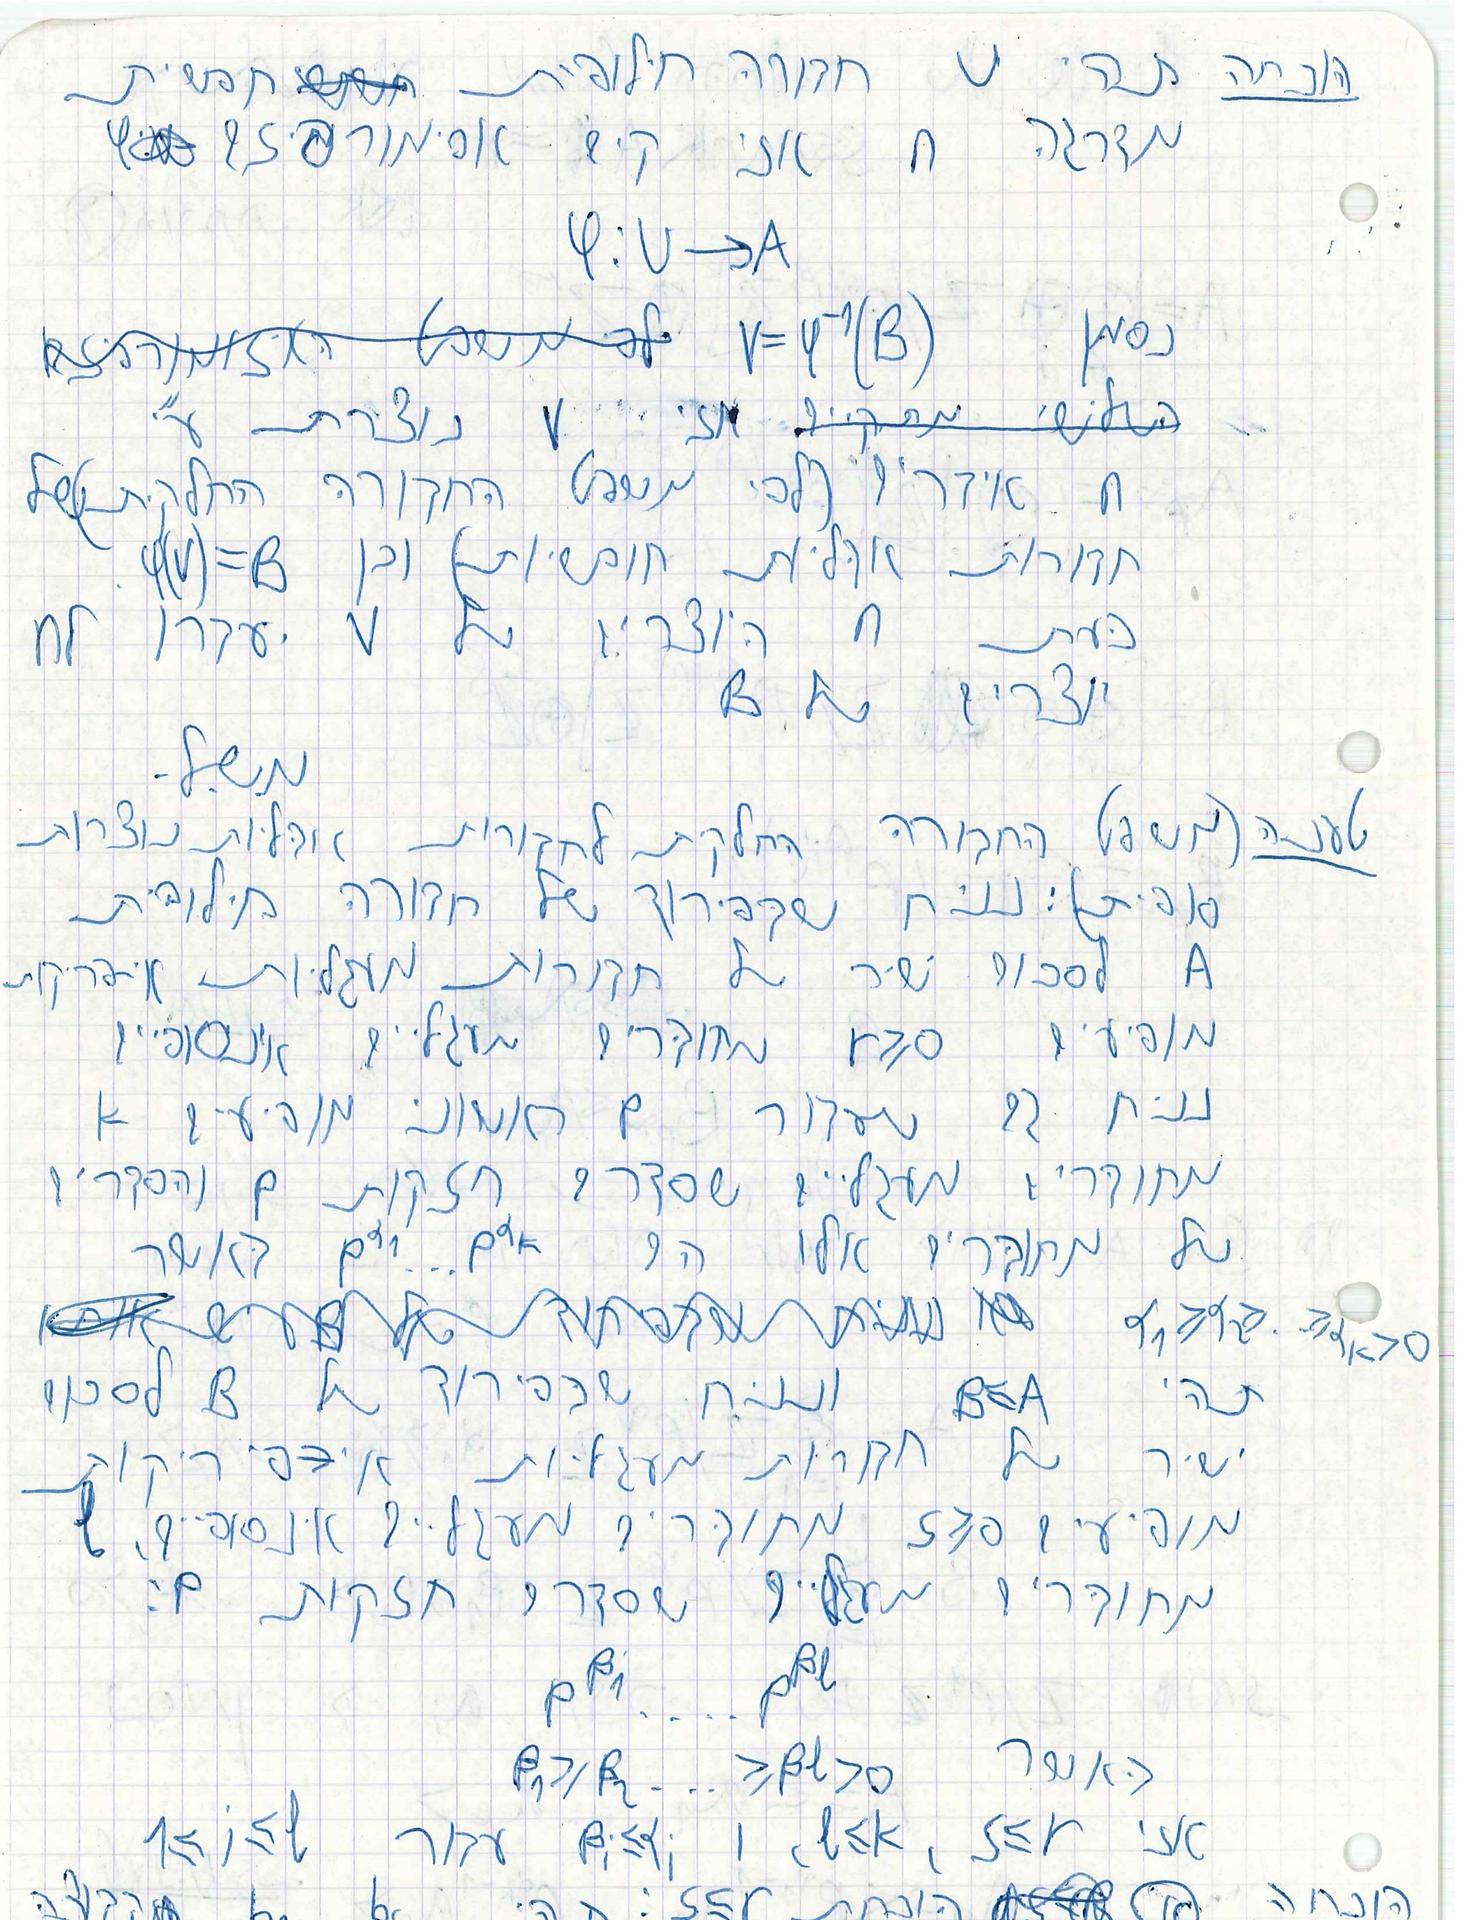 הוכחה תהי U חבורה חילופית חפשית
מדרגה n אזי קים אפימורפיזם φ
φ:U→A
נסמן V=φ⁻¹(B) לפי משפט האזומורפיזם
השלישי מתקיים אזי V נוצרת ע"י
n איברים (לפי משפט החבורה החלקית של
חבורות אבליות חופשיות) וכן φ(V)=B.
כעת n היוצרים של V יעברו לn
יוצרים של B
מ.ש.ל.
טענה (משפט החבורה החלקית לחבורות אבליות נוצרות
סופית): נניח שבפירוק של חבורה חילופית
A לסכום ישיר של חבורות מעגליות אי-פריקות
מופיעים r≥0 מחוברים מעגליים אינסופיים
נניח גם שעבור p ראשוני מופיעים k
מחוברים מעגליים שסדרם חזקות p והסדרים
של מחוברים אלו הם p^α₁...p^αk כאשר
α₁≥α₂≥...≥αk>0
תהי B≤A ונניח שבפירוק של B לסכום
ישיר של חבורות מעגליות אי-פריקות
מופיעים s≥0 מחוברים מעגליים אינסופיים, l
מחוברים מעגליים שסדרם חזקות p:
p^β₁.....p^βl
כאשר β₁≥β₂....≥βl>0
אזי s≤r, l≤k, ו βi≤αi עבור 1≤i≤l
הוכחה הוכחת s≤r: תהי